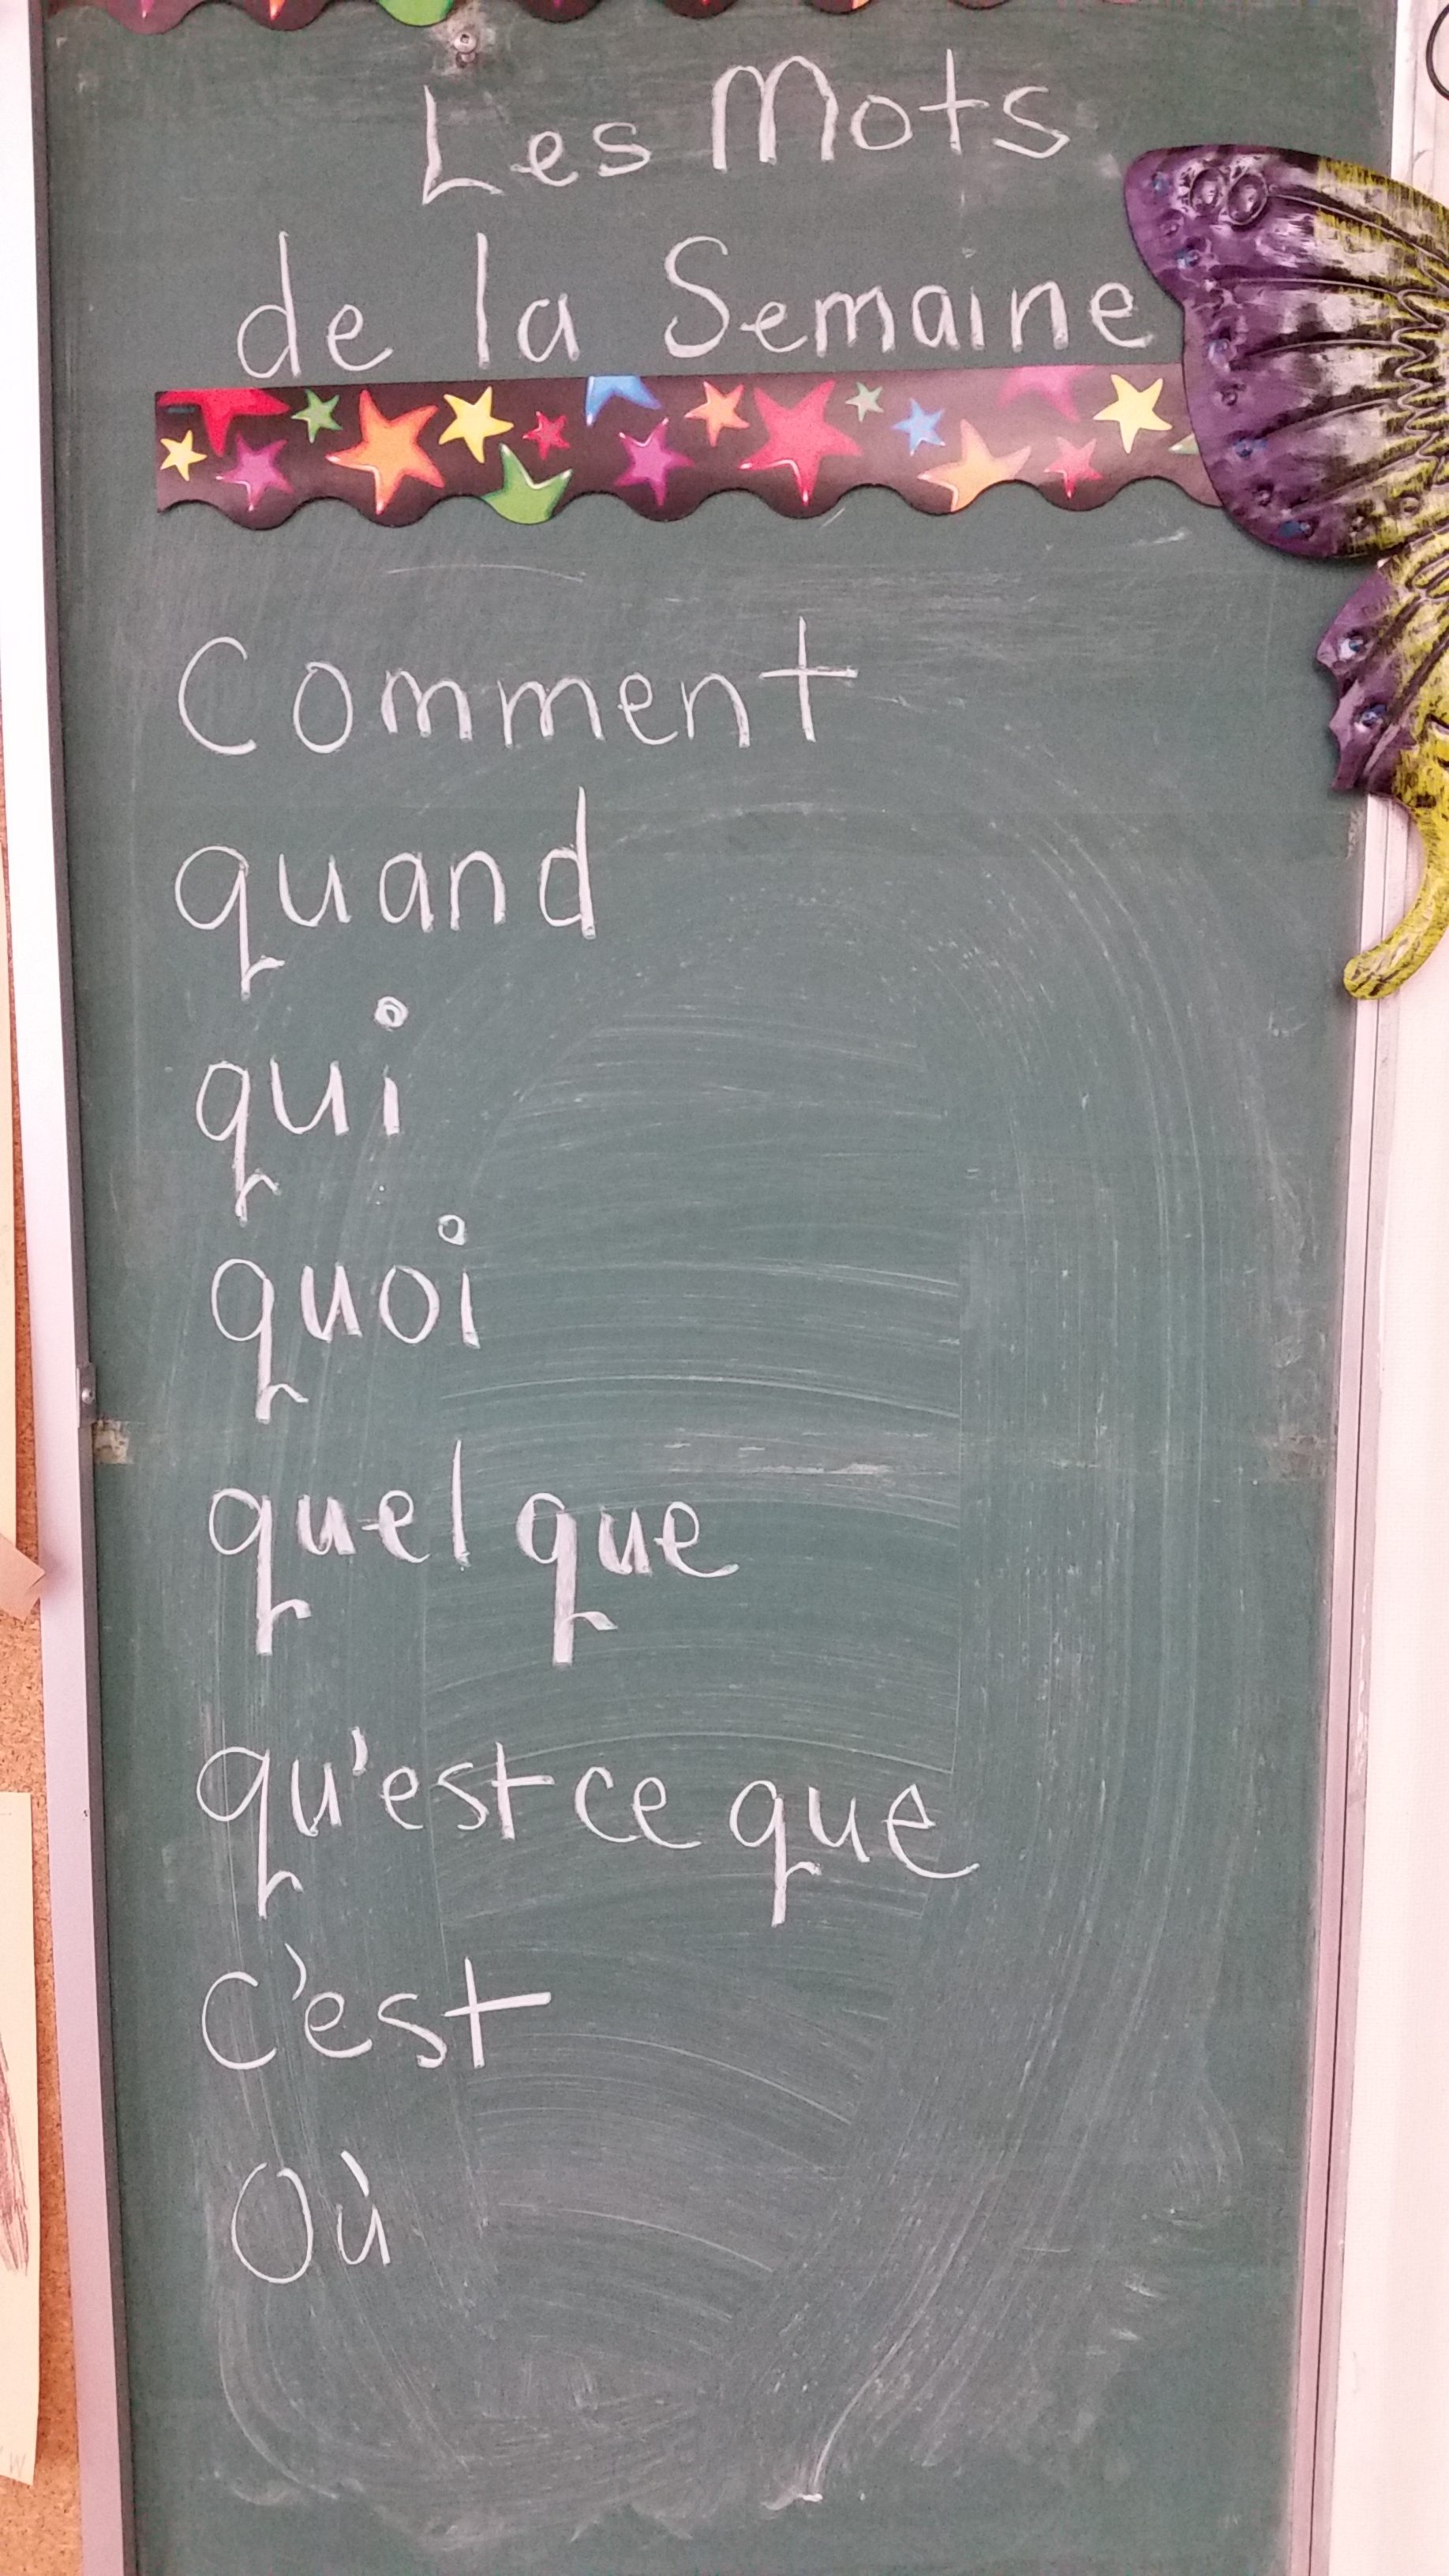 Les Mots
de la Semaine
Comment
quand
qui
quoi
quelque
qu'est ce que
c'est
Où